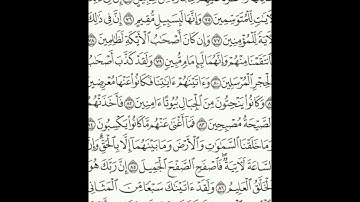 لَآيَاتٍ لِّلْمُتَوَسِّمِينَ ٧٥ وَإِنَّهَا لَبِسَبِيلٍ مُّقِيمٍ ٧٦ إِنَّ فِي ذَٰلِكَ
لَآيَةً لِّلْمُؤْمِنِينَ ٧٧ وَإِن كَانَ أَصْحَابُ الْأَيْكَةِ لَظَالِمِينَ ٧٨
فَانتَقَمْنَا مِنْهُمْ وَإِنَّهُمَا لَبِإِمَامٍ مُّبِينٍ ٧٩ وَلَقَدْ كَذَّبَ أَصْحَابُ
الْحِجْرِ الْمُرْسَلِينَ ٨٠ وَءَاتَيْنَاهُمْ ءَايَاتِنَا فَكَانُوا عَنْهَا مُعْرِضِينَ
٨١ وَكَانُوا يَنْحِتُونَ مِنَ الْجِبَالِ بُيُوتًا ءَامِنِينَ ٨٢ فَأَخَذَتْهُمُ
الصَّيْحَةُ مُصْبِحِينَ ٨٣ فَمَا أَغْنَىٰ عَنْهُم مَّا كَانُوا يَكْسِبُونَ ٨٤
وَمَا خَلَقْنَا السَّمَاوَاتِ وَالْأَرْضَ وَمَا بَيْنَهُمَا إِلَّا بِالْحَقِّ وَإِنَّ
السَّاعَةَ لَآتِيَةٌ فَاصْفَحِ الصَّفْحَ الْجَمِيلَ ٨٥ إِنَّ رَبَّكَ هُوَ
الْخَلَّاقُ الْعَلِيمُ ٨٦ وَلَقَدْ ءَاتَيْنَاكَ سَبْعًا مِّنَ الْمَثَانِي